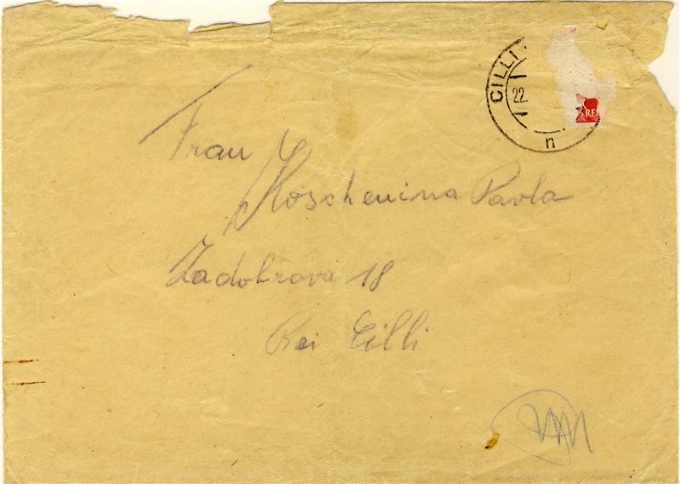 CILLI
22.
n
REI
Frau
Koschenina Paola
Zadobrova 18
Bei Cilli